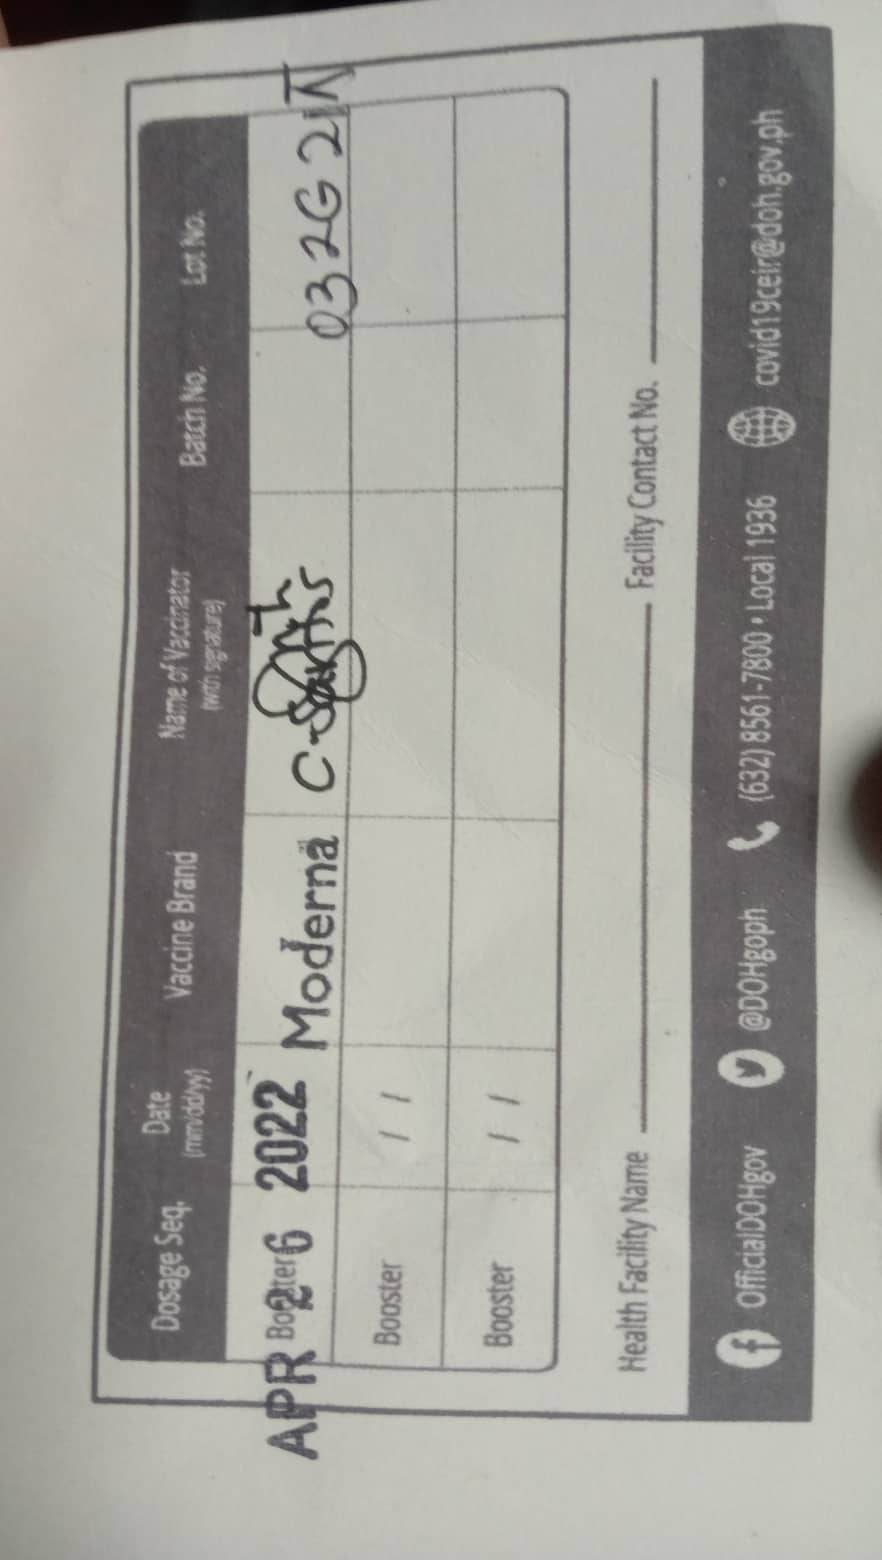 Dosage Seq. Date Vaccine Brand Name of Vaccinator Batch No. Lot No.
(mm/dd/yy) (with signature)
Booster APR 26 2022 Moderna C. Santos 032G21A
Booster / /
Booster / /
Health Facility Name Facility Contact No.
OfficialDOHgov @DOHgoph (632) 8561-7800 • Local 1936 covid19ceir@doh.gov.ph